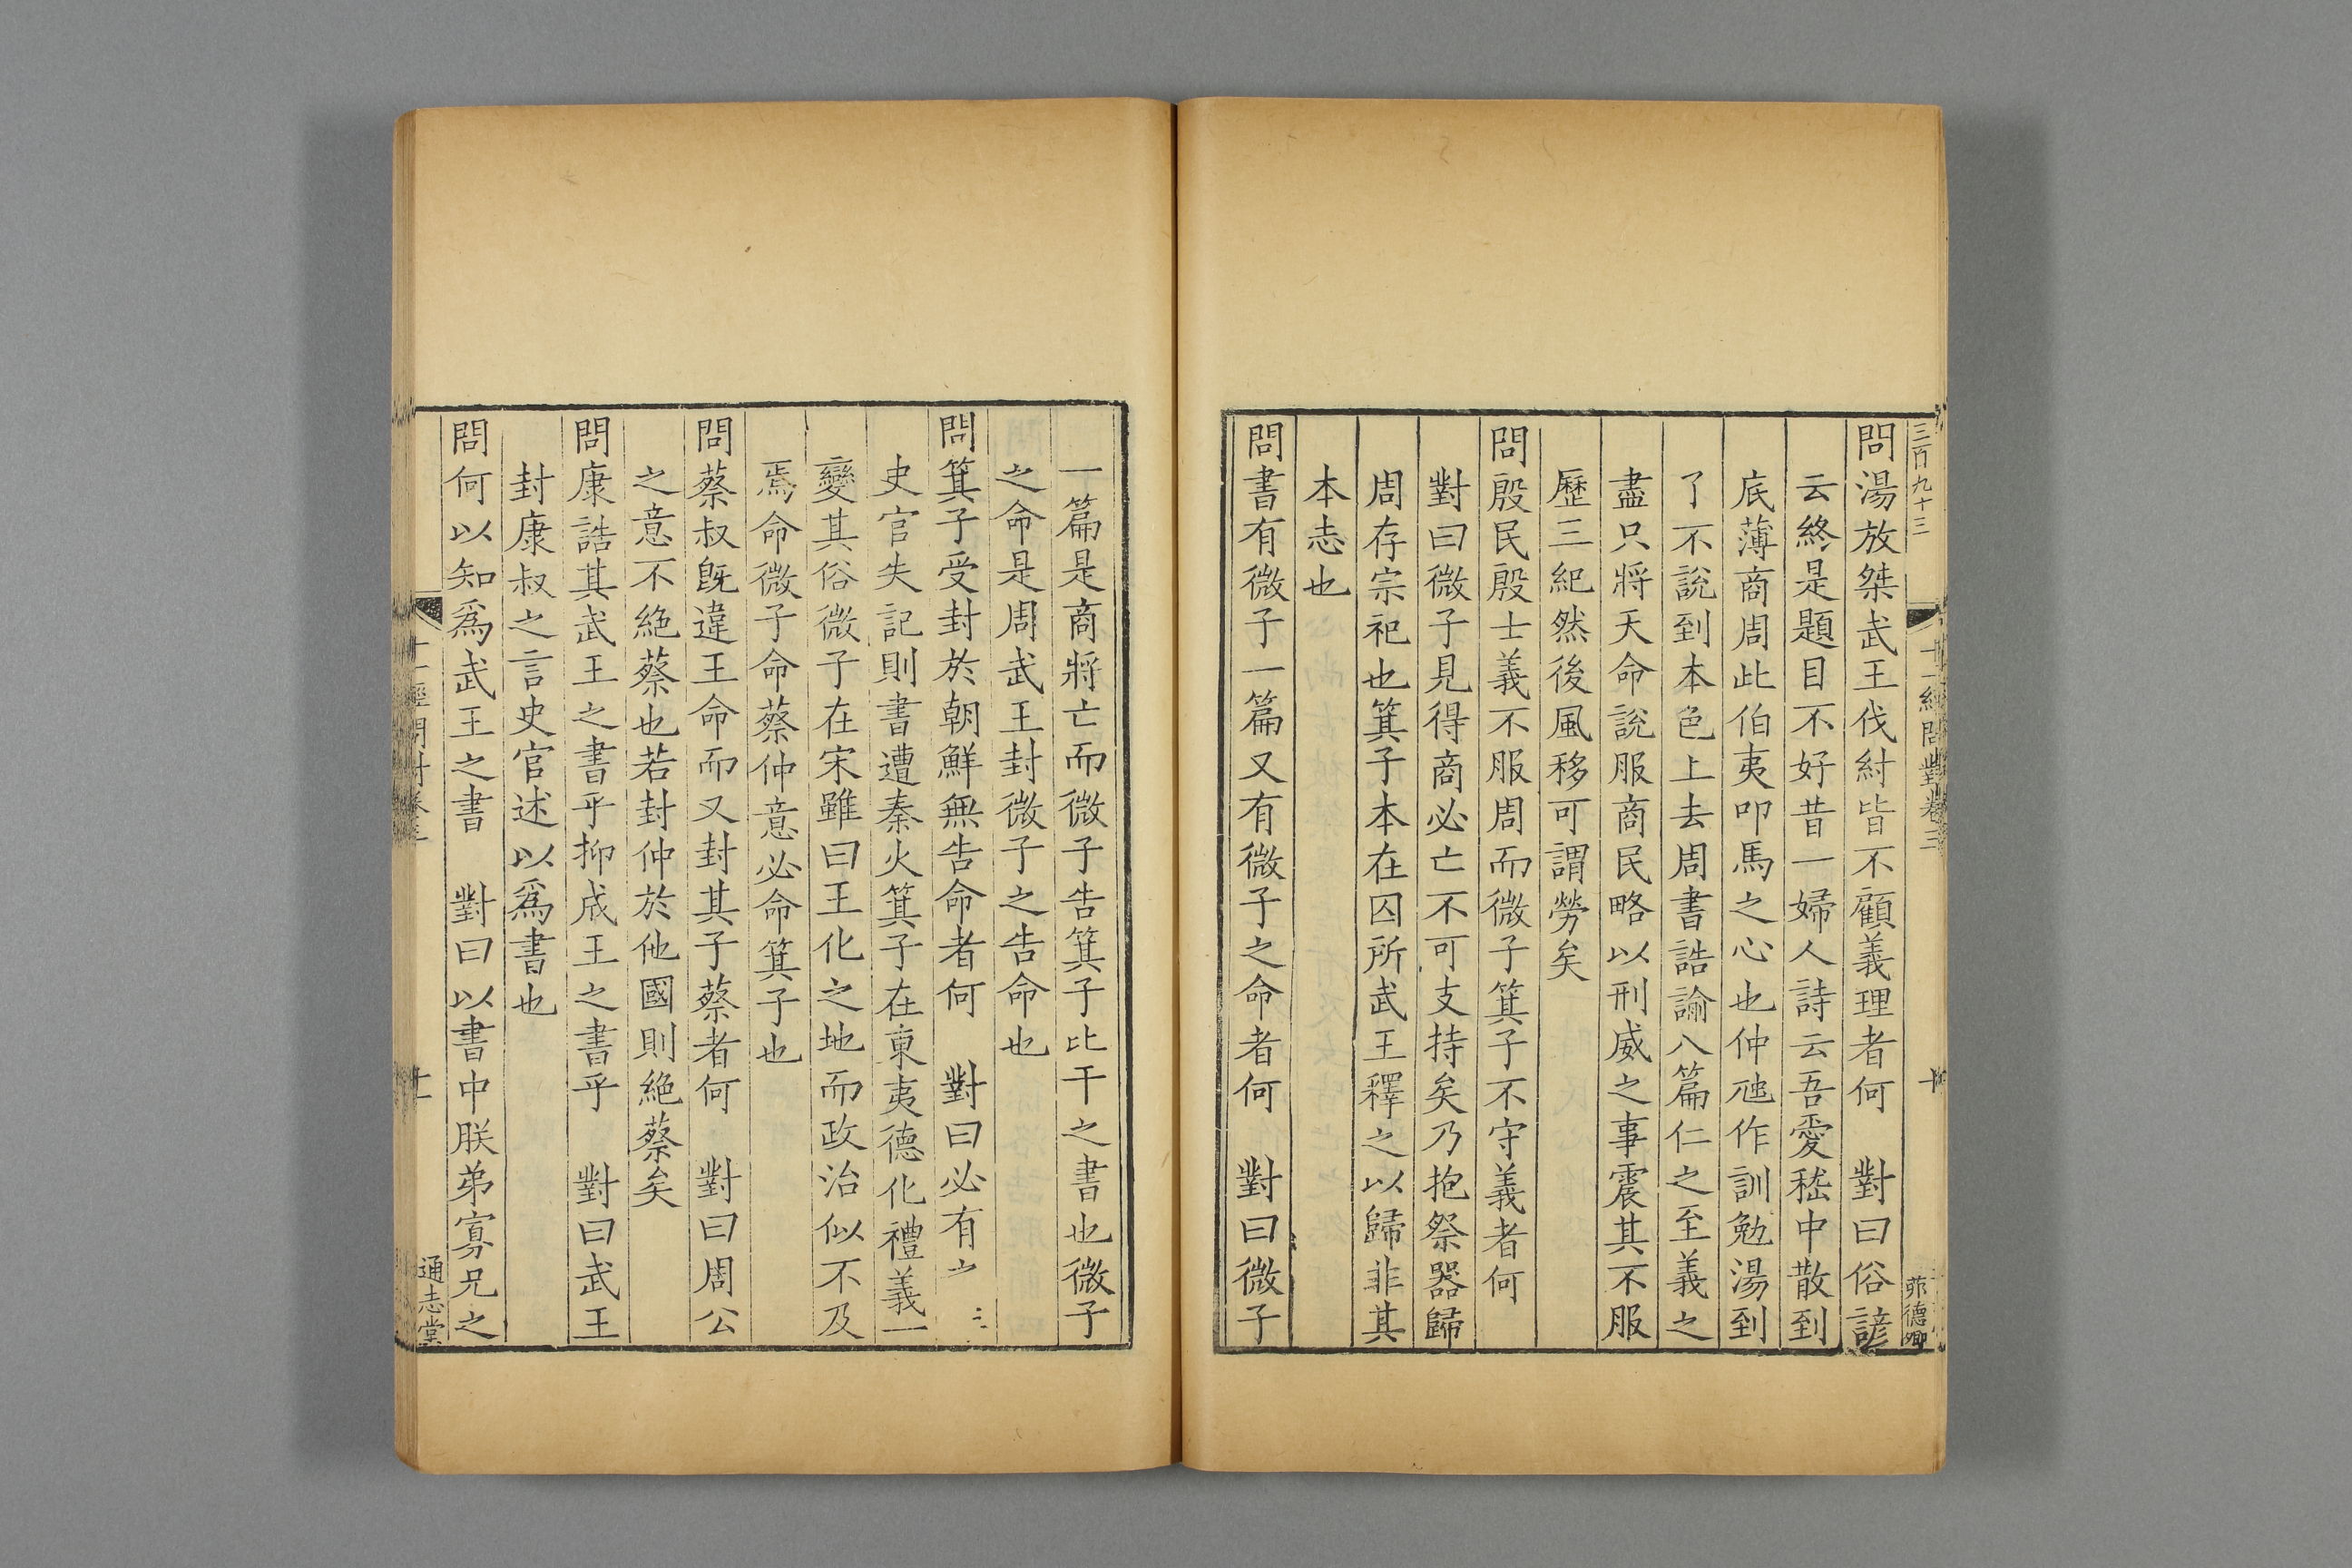 三百九十三
十一經問對卷三
十
茆德卿
問湯放桀武王伐紂皆不顧義理者何　對曰俗諺
云終是題目不好昔一婦人詩云吾愛嵇中散到
底薄商周此伯夷叩馬之心也仲虺作訓勉湯到
了不說到本色上去周書誥諭八篇仁之至義之
盡只將天命說服商民略以刑威之事震其不服
歷三紀然後風移可謂勞矣
問殷民殷士義不服周而微子箕子不守義者何
對曰微子見得商必亡不可支持矣乃抱祭器歸
周存宗祀也箕子本在囚所武王釋之以歸非其
本志也
問書有微子一篇又有微子之命者何　對曰微子
一篇是商將亡而微子告箕子比干之書也微子
之命是周武王封微子之告命也
問箕子受封於朝鮮無告命者何　對曰必有之
史官失記則書遭秦火箕子在東夷德化禮義一
變其俗微子在宋雖曰王化之地而政治似不及
焉命微子命蔡仲意必命箕子也
問蔡叔旣違王命而又封其子蔡者何　對曰周公
之意不絕蔡也若封仲於他國則絕蔡矣
問康誥其武王之書乎抑成王之書乎　對曰武王
封康叔之言史官述以爲書也
問何以知爲武王之書　對曰以書中朕弟寡兄之
十一經問對卷三
十一
通志堂